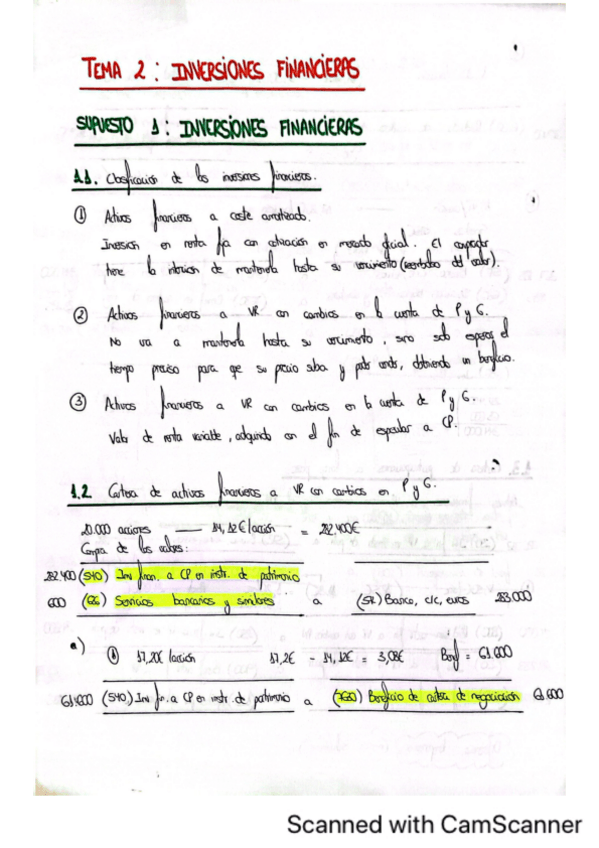 TEMA 2 : INVERSIONES FINANCIERAS
SUPUESTO 1 : INVERSIONES FINANCIERAS
1.1. Clasificación de las inversiones financieras.
① Activos financieros a coste amortizado.
Inversión en renta fija con cotización en mercado oficial. El comprador
tiene la intención de mantenerla hasta su vencimiento (reembolso del valor).
② Activos financieros a VR con cambios en la cuenta de P y G.
No va a mantenerla hasta su vencimiento, sino solo esperar el
tiempo preciso para que su precio suba y pueda venderla, obteniendo un beneficio.
③ Activos financieros a VR con cambios en la cuenta de P y G.
Valor de renta variable, adquirido con el fin de especular a CP.
1.2 Cartera de activos financieros a VR con cambios en P y G.
20.000 acciones — 14,12 €/acción = 282.400€
Compra de los valores:
282.400 (540) Inv finan. a CP en instr. de patrimonio
600 (626) Servicios bancarios y similares a (572) Banco, c/c, euros 283.000
a)
① 17,20€/acción 17,2€ - 14,12€ = 3,08€ Benf = 61.600
61.600 (540) Inv fin. a CP en instr. de patrimonio a (7630) Beneficio de cartera de negociación 61.600
Scanned with CamScanner